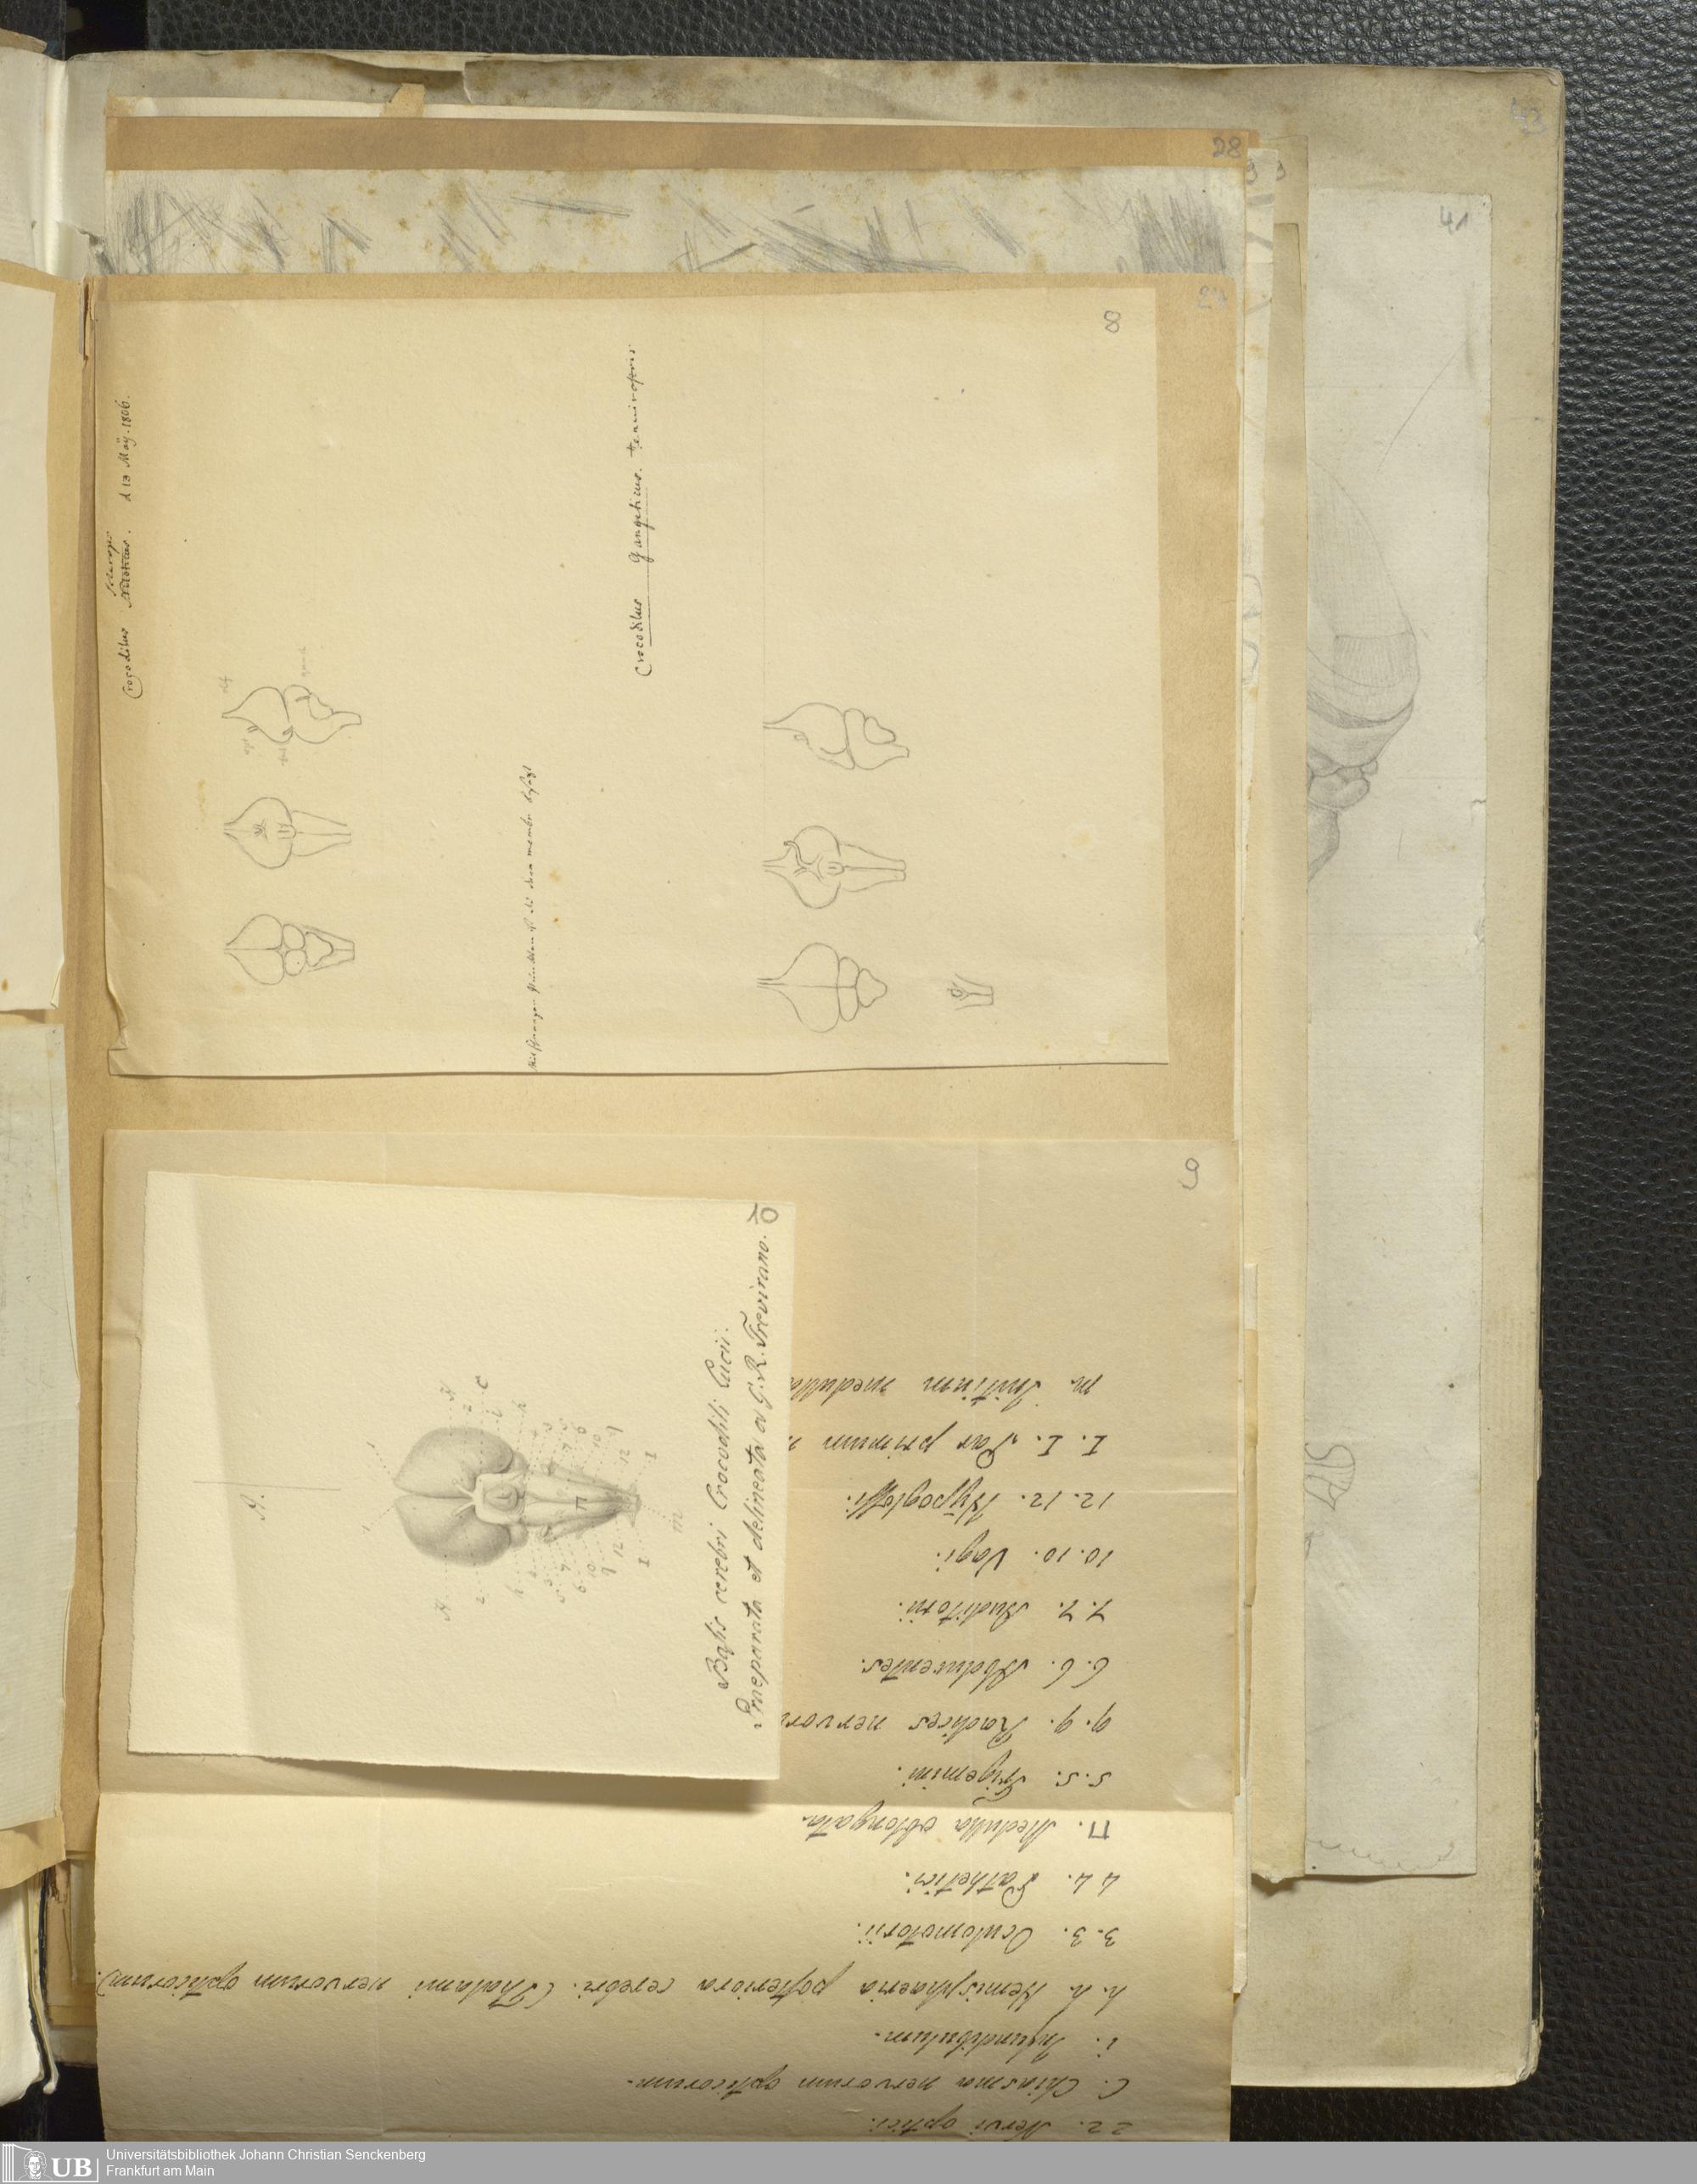 43
41
28
27
8
Crocodilus Sclerops d 13 Maÿ. 1806.
Crocodilus Gangeticus. tenuirostris
9
10
A.
Basis cerebri Crocodili Lucii.
Praeparata et delineata a G. R. Trevirano.
22. Nervi optici.
C. Chiasma nervorum opticorum.
i. Infundibulum.
h. h. Hemisphaeria posteriora cerebri. (Thalami nervorum opticorum).
3. 3. Oculomotorii.
4 4. Pathetici.
Π. Medulla oblongata.
5. 5. Trigemini.
9. 9. Radices nervor
6. 6. Abducentes.
7. 7. Auditorii.
10. 10. Vagi.
12. 12. Hypoglossi.
I. I. Par primum
m. Initium medulla
UB
Universitätsbibliothek Johann Christian Senckenberg
Frankfurt am Main